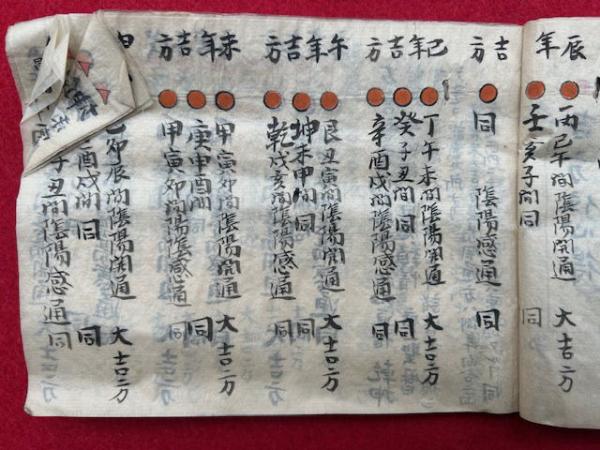 辰年
丙巳午間陰陽開通 大吉方
壬亥子間同 同
吉方
同 陰陽感通 同
巳年吉方
丁午未間陰陽開通 大吉方
癸子丑間同 同
辛酉戌間陰陽感通 同
午年吉方
艮丑寅間陰陽開通 大吉方
坤未申間同 同
乾戌亥間陰陽感通 同
未年吉方
甲寅卯間陰陽開通 大吉方
庚申酉間 同
甲寅卯間陽陰感通 同
卯辰間陰陽開通 大吉方
酉戌間 同 同
子丑間陰陽感通 同